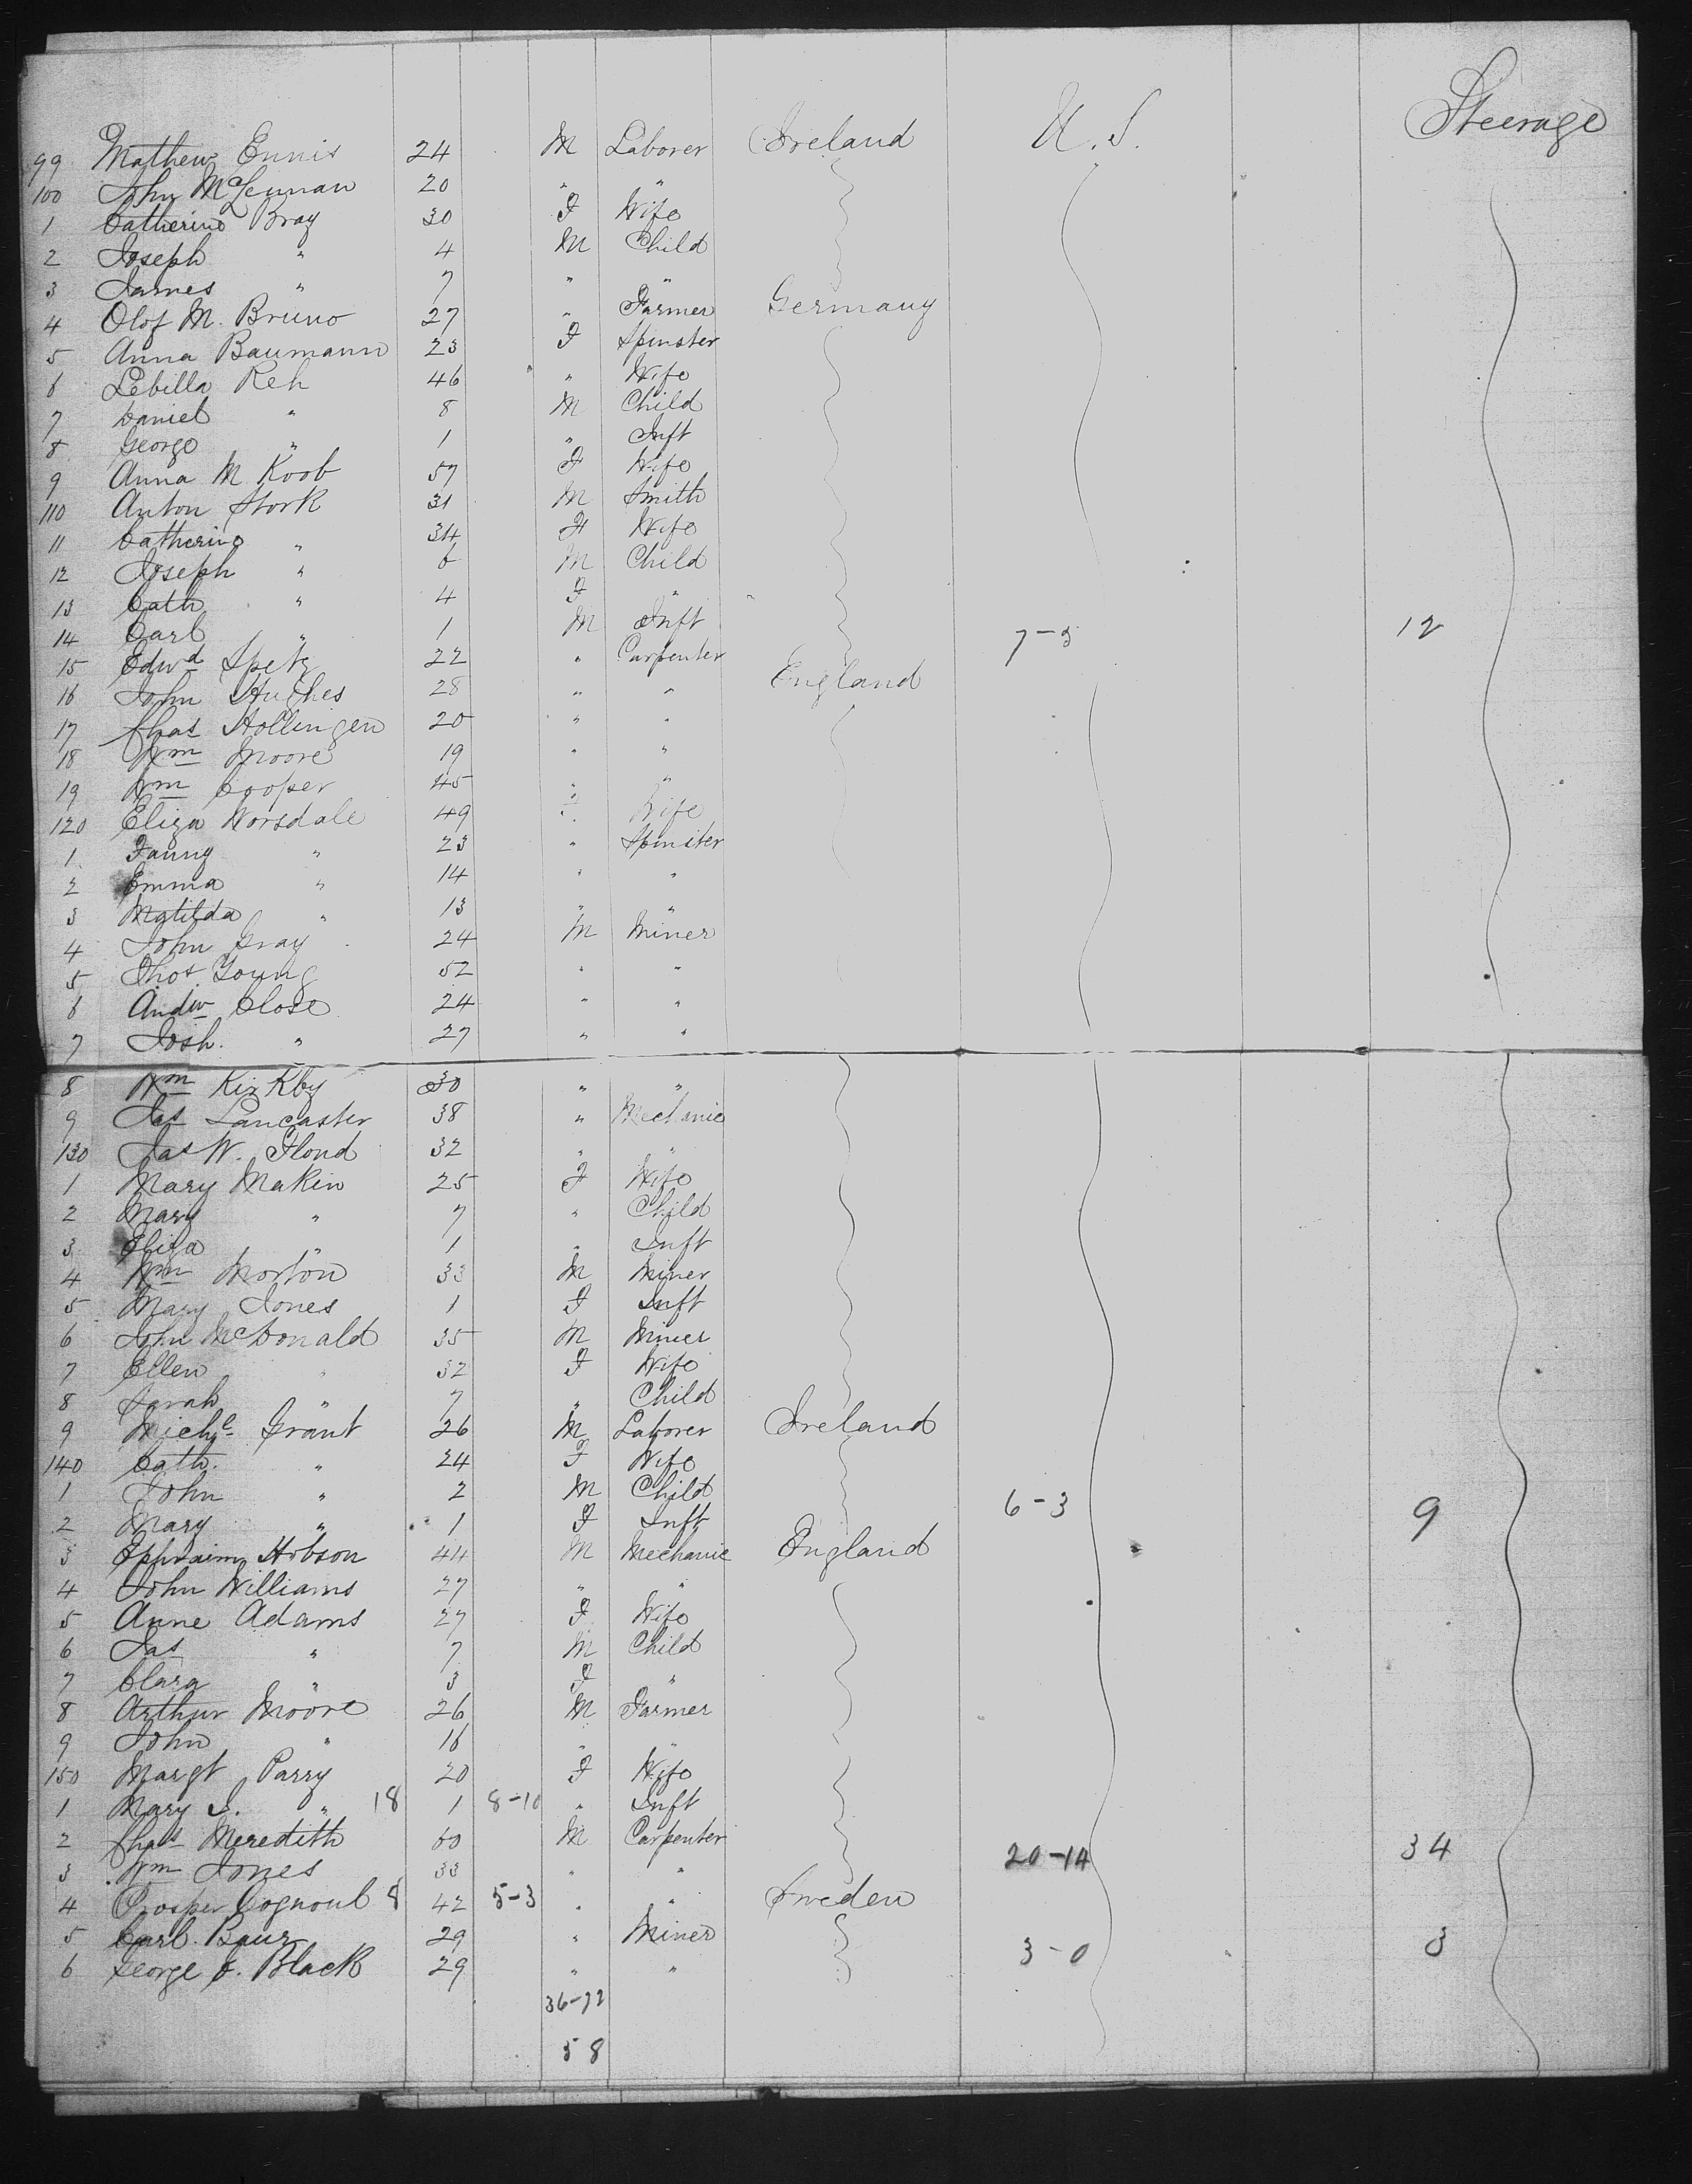 Steerage
99 Mathew Ennis 24 M Laborer Ireland U.S.
100 John McLennan 20 " "
1 Catherine Bray 30 F Wife
2 Joseph " 4 M Child
3 James " 7 " "
4 Olof M. Bruno 27 " Farmer Germany
5 Anna Baumann 23 F Spinster
6 Lebilla Reh 46 " Wife
7 Daniel " 8 M Child
8 George " 1 " Inft
9 Anna M Koob 57 F Wife
110 Anton Stork 31 M Smith
11 Catherine " 34 F Wife
12 Joseph " 6 M Child
13 Cath " 4 F "
14 Carl " 1 M Inft 7-5 12
15 Edwd Spetz 22 " Carpenter
16 John Hughes 28 " " England
17 Chas Hollingen 20 " "
18 Wm Moore 19 " "
19 Wm Cooper 45 " "
120 Eliza Worsdale 49 F Wife
1 Fanny " 23 " Spinster
2 Emma " 14 " "
3 Matilda " 13 " "
4 John Gray 24 M Miner
5 Thos. Young 52 " "
6 Andw Close 24 " "
7 Josh. " 27 " "
8 Wm Kirkby 30 " "
9 Jas Lancaster 38 " Mechanic
130 Jas W. Flond 32 " "
1 Mary Makin 25 F Wife
2 Mary " 7 " Child
3 Eliza " 1 " Inft
4 Wm Morton 33 M Miner
5 Mary Jones 1 F Inft
6 John McDonald 35 M Miner
7 Ellen " 32 F Wife
8 Sarah " 7 " Child
9 Michl Grant 26 M Laborer Ireland
140 Cath. " 24 F Wife
1 John " 2 M Child 6-3 9
2 Mary " 1 F Inft
3 Ephraim Hobson 44 M Mechanic England
4 John Williams 27 " "
5 Anne Adams 27 F Wife
6 Jas " 7 M Child
7 Clara " 3 F "
8 Arthur Moore 26 M Farmer
9 John " 16 " "
150 Margt Parry 20 F Wife
1 Mary J. " 18 1 8-10 " Inft
2 Chas Meredith 60 M Carpenter 20-14 34
3 Wm Jones 33 " "
4 Prosper Cognoul 8 42 5-3 " " Sweden
5 Carl Baur 29 " Miner 3-0 3
6 George J. Black 29 " "
36-22
58